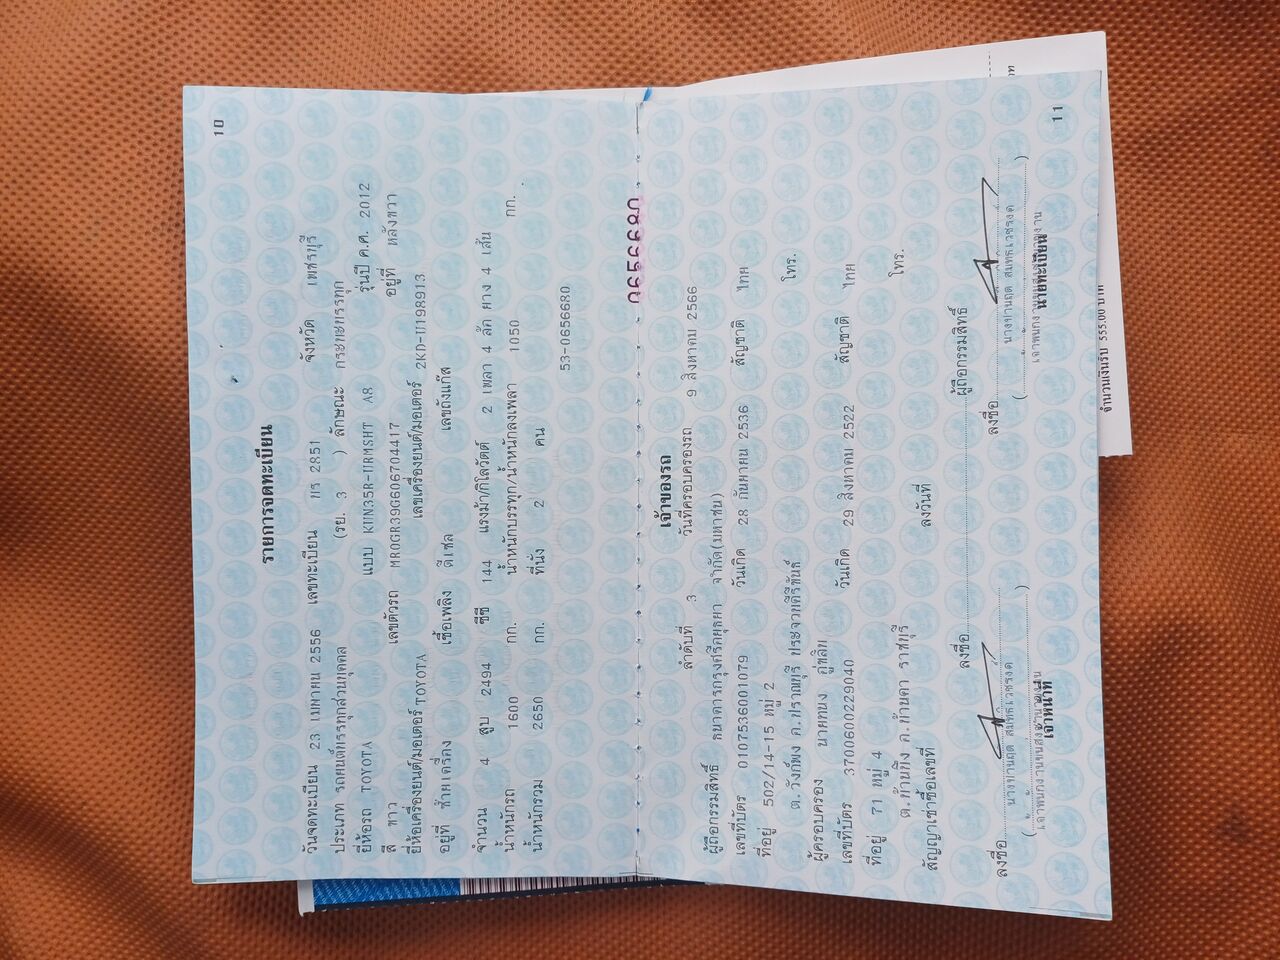 10
รายการจดทะเบียน
วันจดทะเบียน 23 เมษายน 2556 เลขทะเบียน บร 2851 จังหวัด เพชรบุรี
ประเภท รถยนต์บรรทุกส่วนบุคคล (รย. 3 ) ลักษณะ กระบะบรรทุก
ยี่ห้อรถ TOYOTA แบบ KUN35R-URMSHT A8 รุ่นปี ค.ศ. 2012
สี ขาว เลขตัวรถ MR0GR39G606704417 อยู่ที่ หลังขวา
ยี่ห้อเครื่องยนต์/มอเตอร์ TOYOTA เลขเครื่องยนต์/มอเตอร์ 2KD-U198913
อยู่ที่ ซ้ายเครื่อง เชื้อเพลิง ดีเซล เลขถังแก๊ส
จำนวน 4 สูบ 2494 ซีซี 144 แรงม้า/กิโลวัตต์ 2 เพลา 4 ล้อ ยาง 4 เส้น
น้ำหนักรถ 1600 กก. น้ำหนักบรรทุก/น้ำหนักลงเพลา 1050 กก.
น้ำหนักรวม 2650 กก. ที่นั่ง 2 คน
53-0656680
0656680
เจ้าของรถ
ลำดับที่ 3 วันที่ครอบครองรถ 9 สิงหาคม 2566
ผู้ถือกรรมสิทธิ์ ธนาคารกรุงศรีอยุธยา จำกัด(มหาชน)
เลขที่บัตร 0107536001079 วันเกิด 28 กันยายน 2536 สัญชาติ ไทย
ที่อยู่ 502/14-15 หมู่ 2
ต.วังก์พง อ.ปราณบุรี ประจวบคีรีขันธ์ โทร.
ผู้ครอบครอง นายทนง
เลขที่บัตร 3700600229040 วันเกิด 29 สิงหาคม 2522 สัญชาติ ไทย
ที่อยู่ 71 หมู่ 4
ต.บ้านม่วง อ.บ้านคา ราชบุรี โทร.
สัญญาเช่าซื้อเลขที่ ลงวันที่
ลงชื่อ ผู้ถือกรรมสิทธิ์
ลงชื่อ ลงชื่อ
เจ้าหน้าที่ นายทะเบียน
11
จำนวนเงินรับ 555.00 บาท